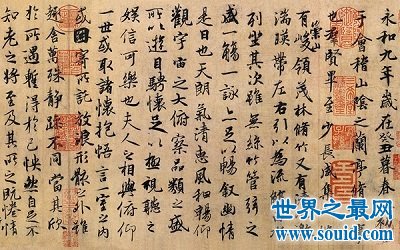 永和九年歲在癸丑暮春之初
于會稽山陰之蘭亭脩
也群賢畢至少長咸集
有崇山峻領茂林脩竹又有清
湍暎帶左右引以為流
列坐其次雖無絲竹管弦之
盛一觴一詠亦足以暢敘幽情
是日也天朗氣清惠風和暢仰
觀宇宙之大俯察品類之盛
所以遊目騁懷足以極視聽之
娛信可樂也夫人之相與俯仰
一世或取諸懷抱悟言一室之內
或因寄所託放浪形骸之外雖
趣舍萬殊靜躁不同當其欣
於所遇暫得於己怏然自足不
知老之將至及其所之既惓情
世界之最网
www.souid.com